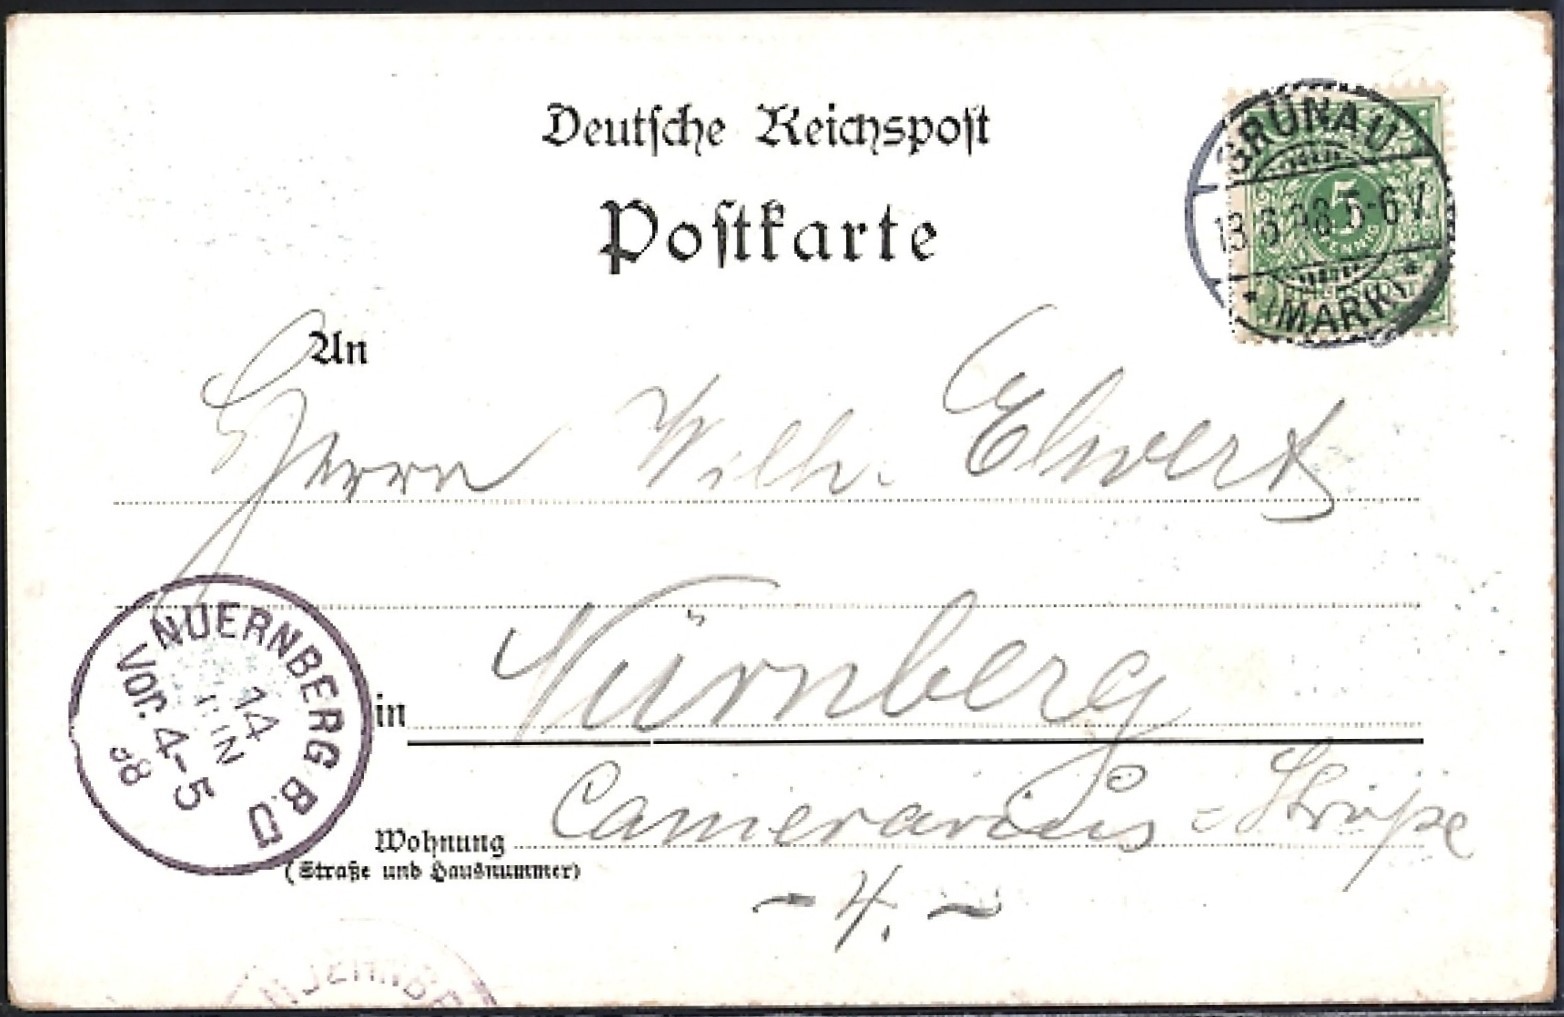 Deutsche Reichspost
Postkarte
GRÜNAU
13 6 98 5-6 V
* (MARK) *
5
PFENNIG
An
Herrn Wilh. Ehwert
in Nürnberg
Wohnung Camerarius = Straße
(Straße und Hausnummer)
- 4. -
NUERNBERG B.O
14
JUN
Vor. 4-5
98
NUERNBE